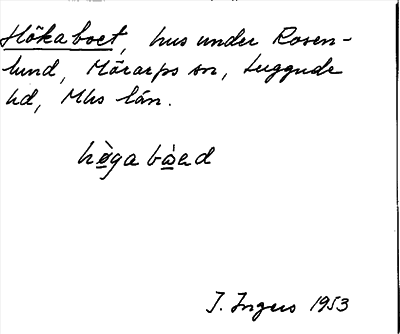 Hökaboet, hus under Rosen-
lund, Mörarps sn, Luggude
hd, Mhs län.
hø̀ga bòəd
I. Ingers 1953